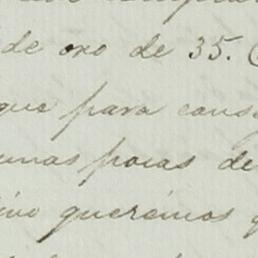 de oro de 35.
que para cons
unas pocas de
queramos q